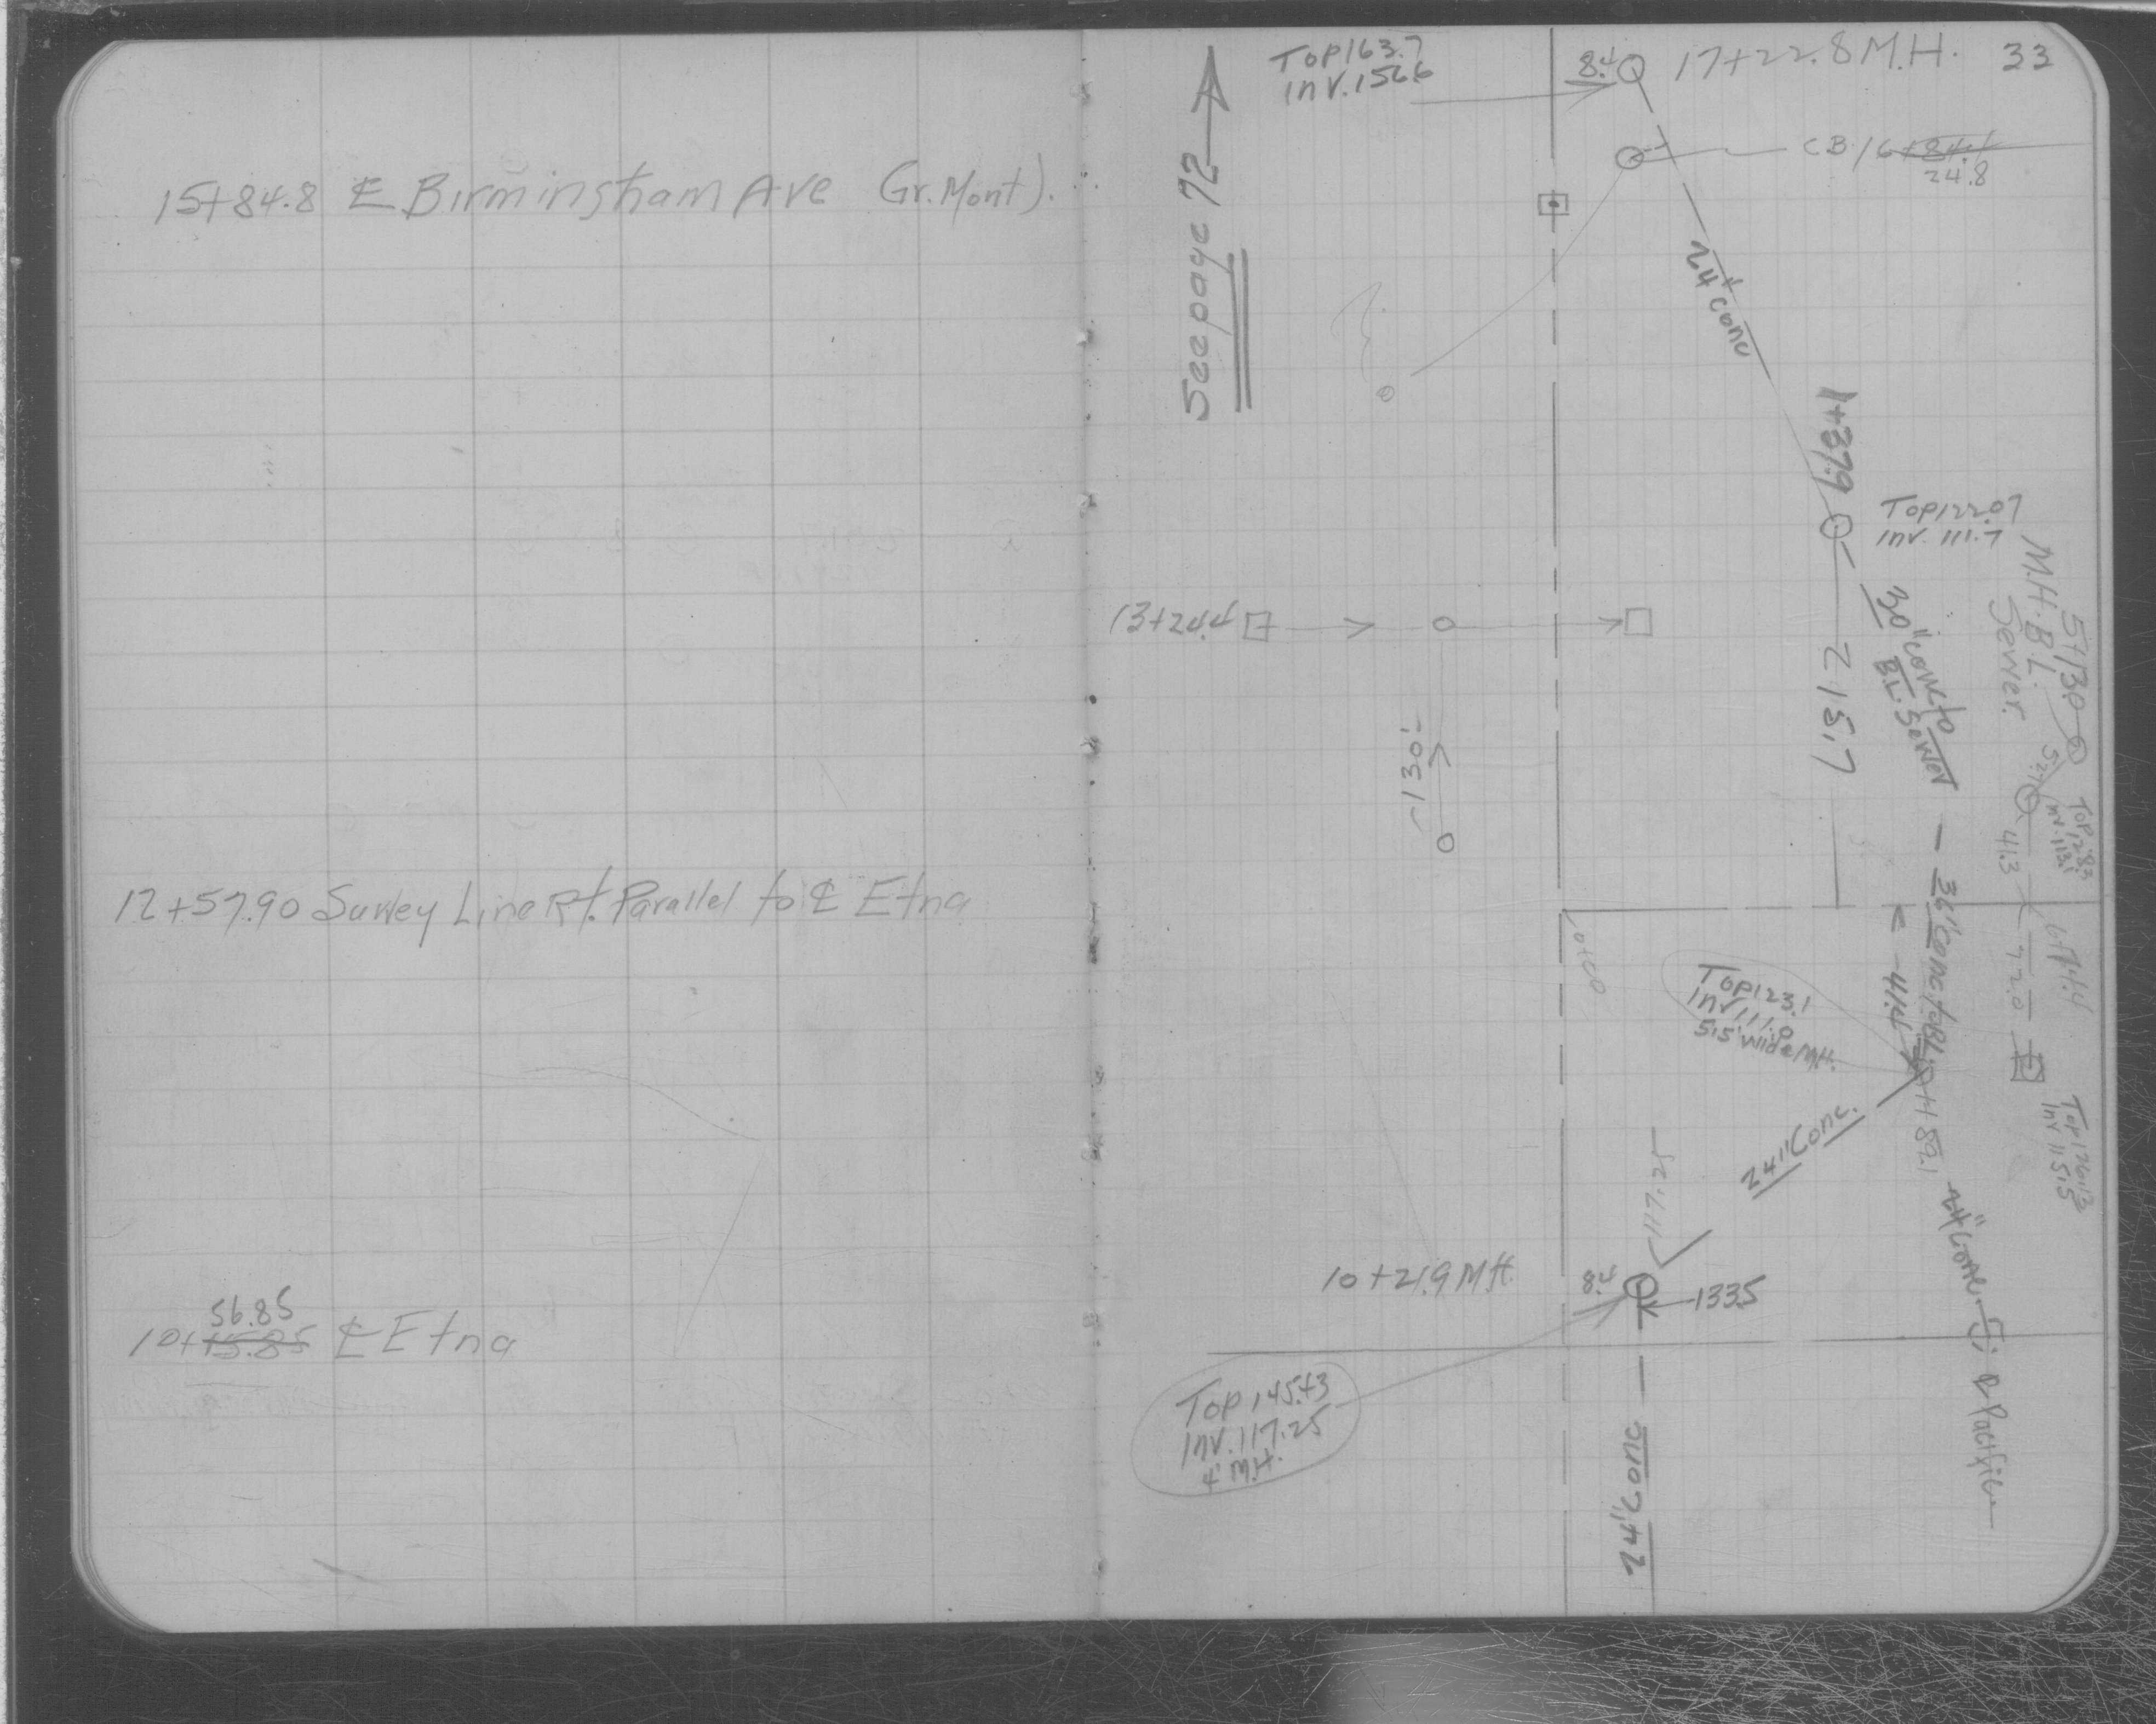 15+84.8 ℄ Birmingham Ave Gr. Mont).
12+57.90 Survey Line Rt. Parallel to ℄ Etna
56.85
10+15.85 ℄ Etna
33
See page 72
Top 163.7
Inv. 156.6
8.4
17+22.8 M.H.
CB 16+84.1
24.8
24" Conc
1+37.9
Top 122.07
Inv. 111.7
30" Conc to
B.L. Sewer
215.7
5+130
M.H. B.L.
Sewer.
52.1
Top 128.2
Inv. 113.1
41.3
13+24.4
130'
36" Conc to BL
0+00
72.0
41.4
Top 123.1
Inv 111.0
5.5' wide M.H.
Top 126.13
Inv 115.5
24" Conc.
117.25
24" Conc.
& Pacific
10+21.9 M.H.
8.4
133.5
Top 145.43
Inv. 117.25
4' M.H.
24" Conc